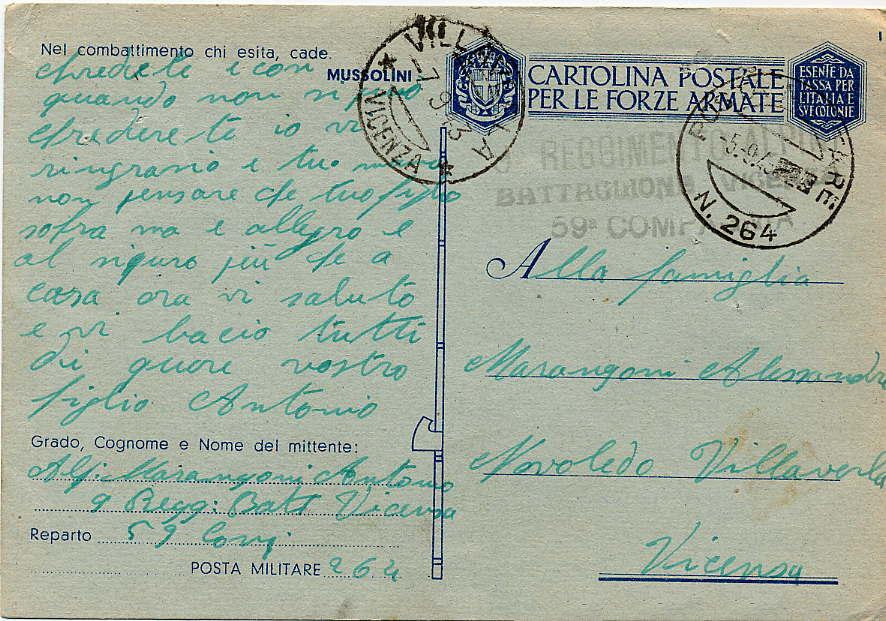 Nel combattimento chi esita, cade.
MUSSOLINI
credete e con
quando non si può
credere te io vi
ringrasio e tu
non pensare che tuo figlio
sofra ma e allegro e
al siguro più che a
casa ora vi saluto
e vi bacio tutti
di quore vostro
figlio Antonio
Grado, Cognome e Nome del mittente:
Alp. Marangoni Antonio
9 Regg: Batt Vicensa
Reparto 59 Comp
POSTA MILITARE 264
VILLAVERLA
-7.9.43
* VICENZA *
CARTOLINA POSTALE
PER LE FORZE ARMATE
ESENTE DA
TASSA PER
L'ITALIA E
SUE COLONIE
N. 264
9° REGGIMENTO ALPINI
BATTAGLIONE VICENZA
59ª COMPAGNIA
Alla famiglia
Marangoni Alessandro
Novoledo Villaverla
Vicensa